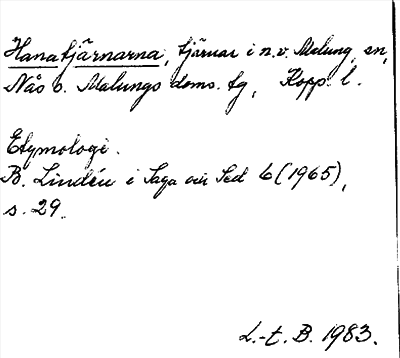 Hanatjärnarna, tjärnar i n.v. Malung sn,
Nås o. Malungs doms. tg, Kopp. l.
Etymologi.
B. Lindén i Saga och Sed 6 (1965),
s. 29.
L.-t. B. 1983.